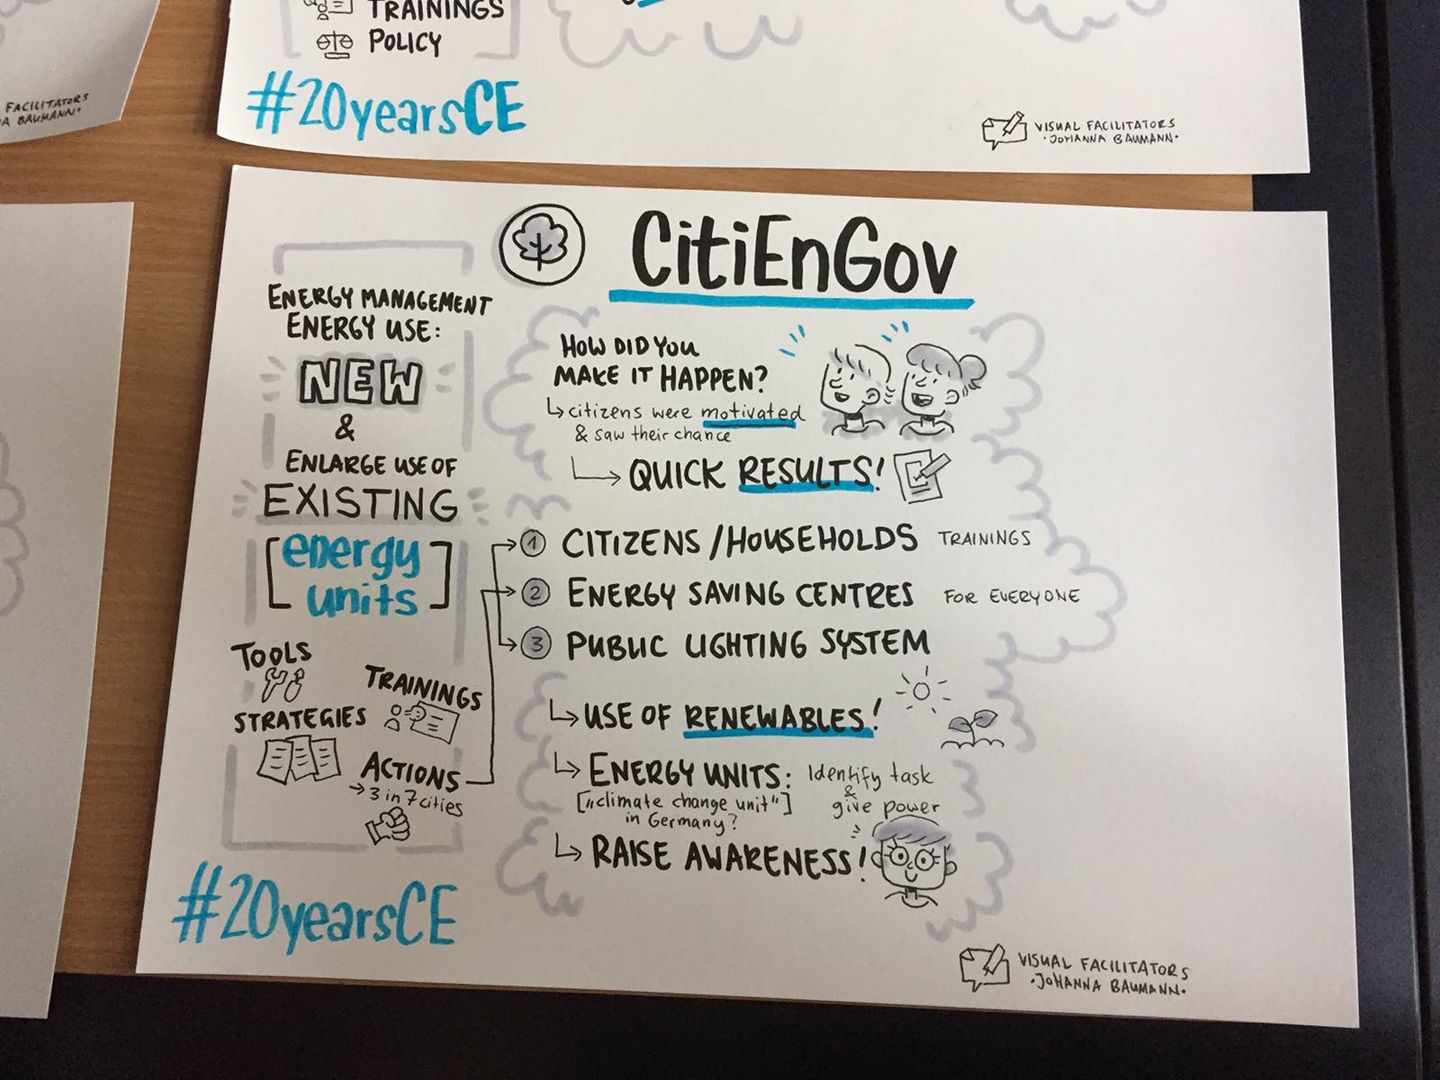 TRAININGS
POLICY
#20yearsCE
FACILITATORS
BAUMANN·
VISUAL FACILITATORS
·JOHANNA BAUMANN·
CitiEnGov
ENERGY MANAGEMENT
ENERGY USE:
NEW
&
ENLARGE USE OF
EXISTING
[energy
units]
TOOLS
TRAININGS
STRATEGIES
ACTIONS
→ 3 in 7 cities
#20yearsCE
HOW DID YOU
MAKE IT HAPPEN?
↳ citizens were motivated
& saw their chance
↳ QUICK RESULTS!
1 CITIZENS / HOUSEHOLDS TRAININGS
2 ENERGY SAVING CENTRES FOR EVERYONE
3 PUBLIC LIGHTING SYSTEM
↳ USE OF RENEWABLES!
↳ ENERGY UNITS: Identify task
& 
["climate change unit"] give power
in Germany?
↳ RAISE AWARENESS!
VISUAL FACILITATORS
·JOHANNA BAUMANN·